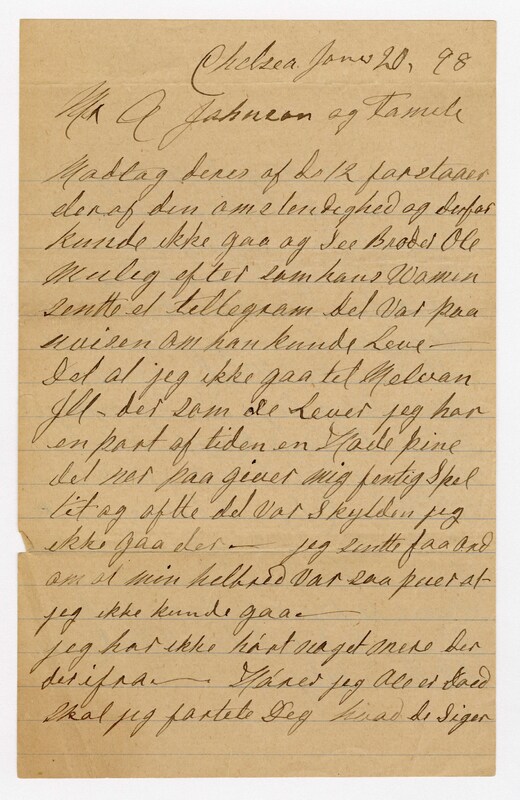 Chelsea Jones 20, 98
Mr A Johnson og Famele
Madtag deres af ds 12 forstaaer
deraf den omstendighed og derfor
kunde ikke gaa og See Broder Ole
Muleg efter som hans Women
sentte et tellegram det var paa
uvisen om han kunde Leve —
Det at jeg ikke gaa til Melvan
Ill - der som de Lever jeg har
en part af tiden en Hode pine
det ner paa giver mig
tit og aftte det var Skylden jeg
ikke gaa der — jeg sentte faa ord
om at min helbred var saa puer at
jeg ikke kunde gaa —
jeg har ikke hört noget mere der
der ifra — Hörer jeg Ole er Död
skal jeg fortele Deg hvad de Siger